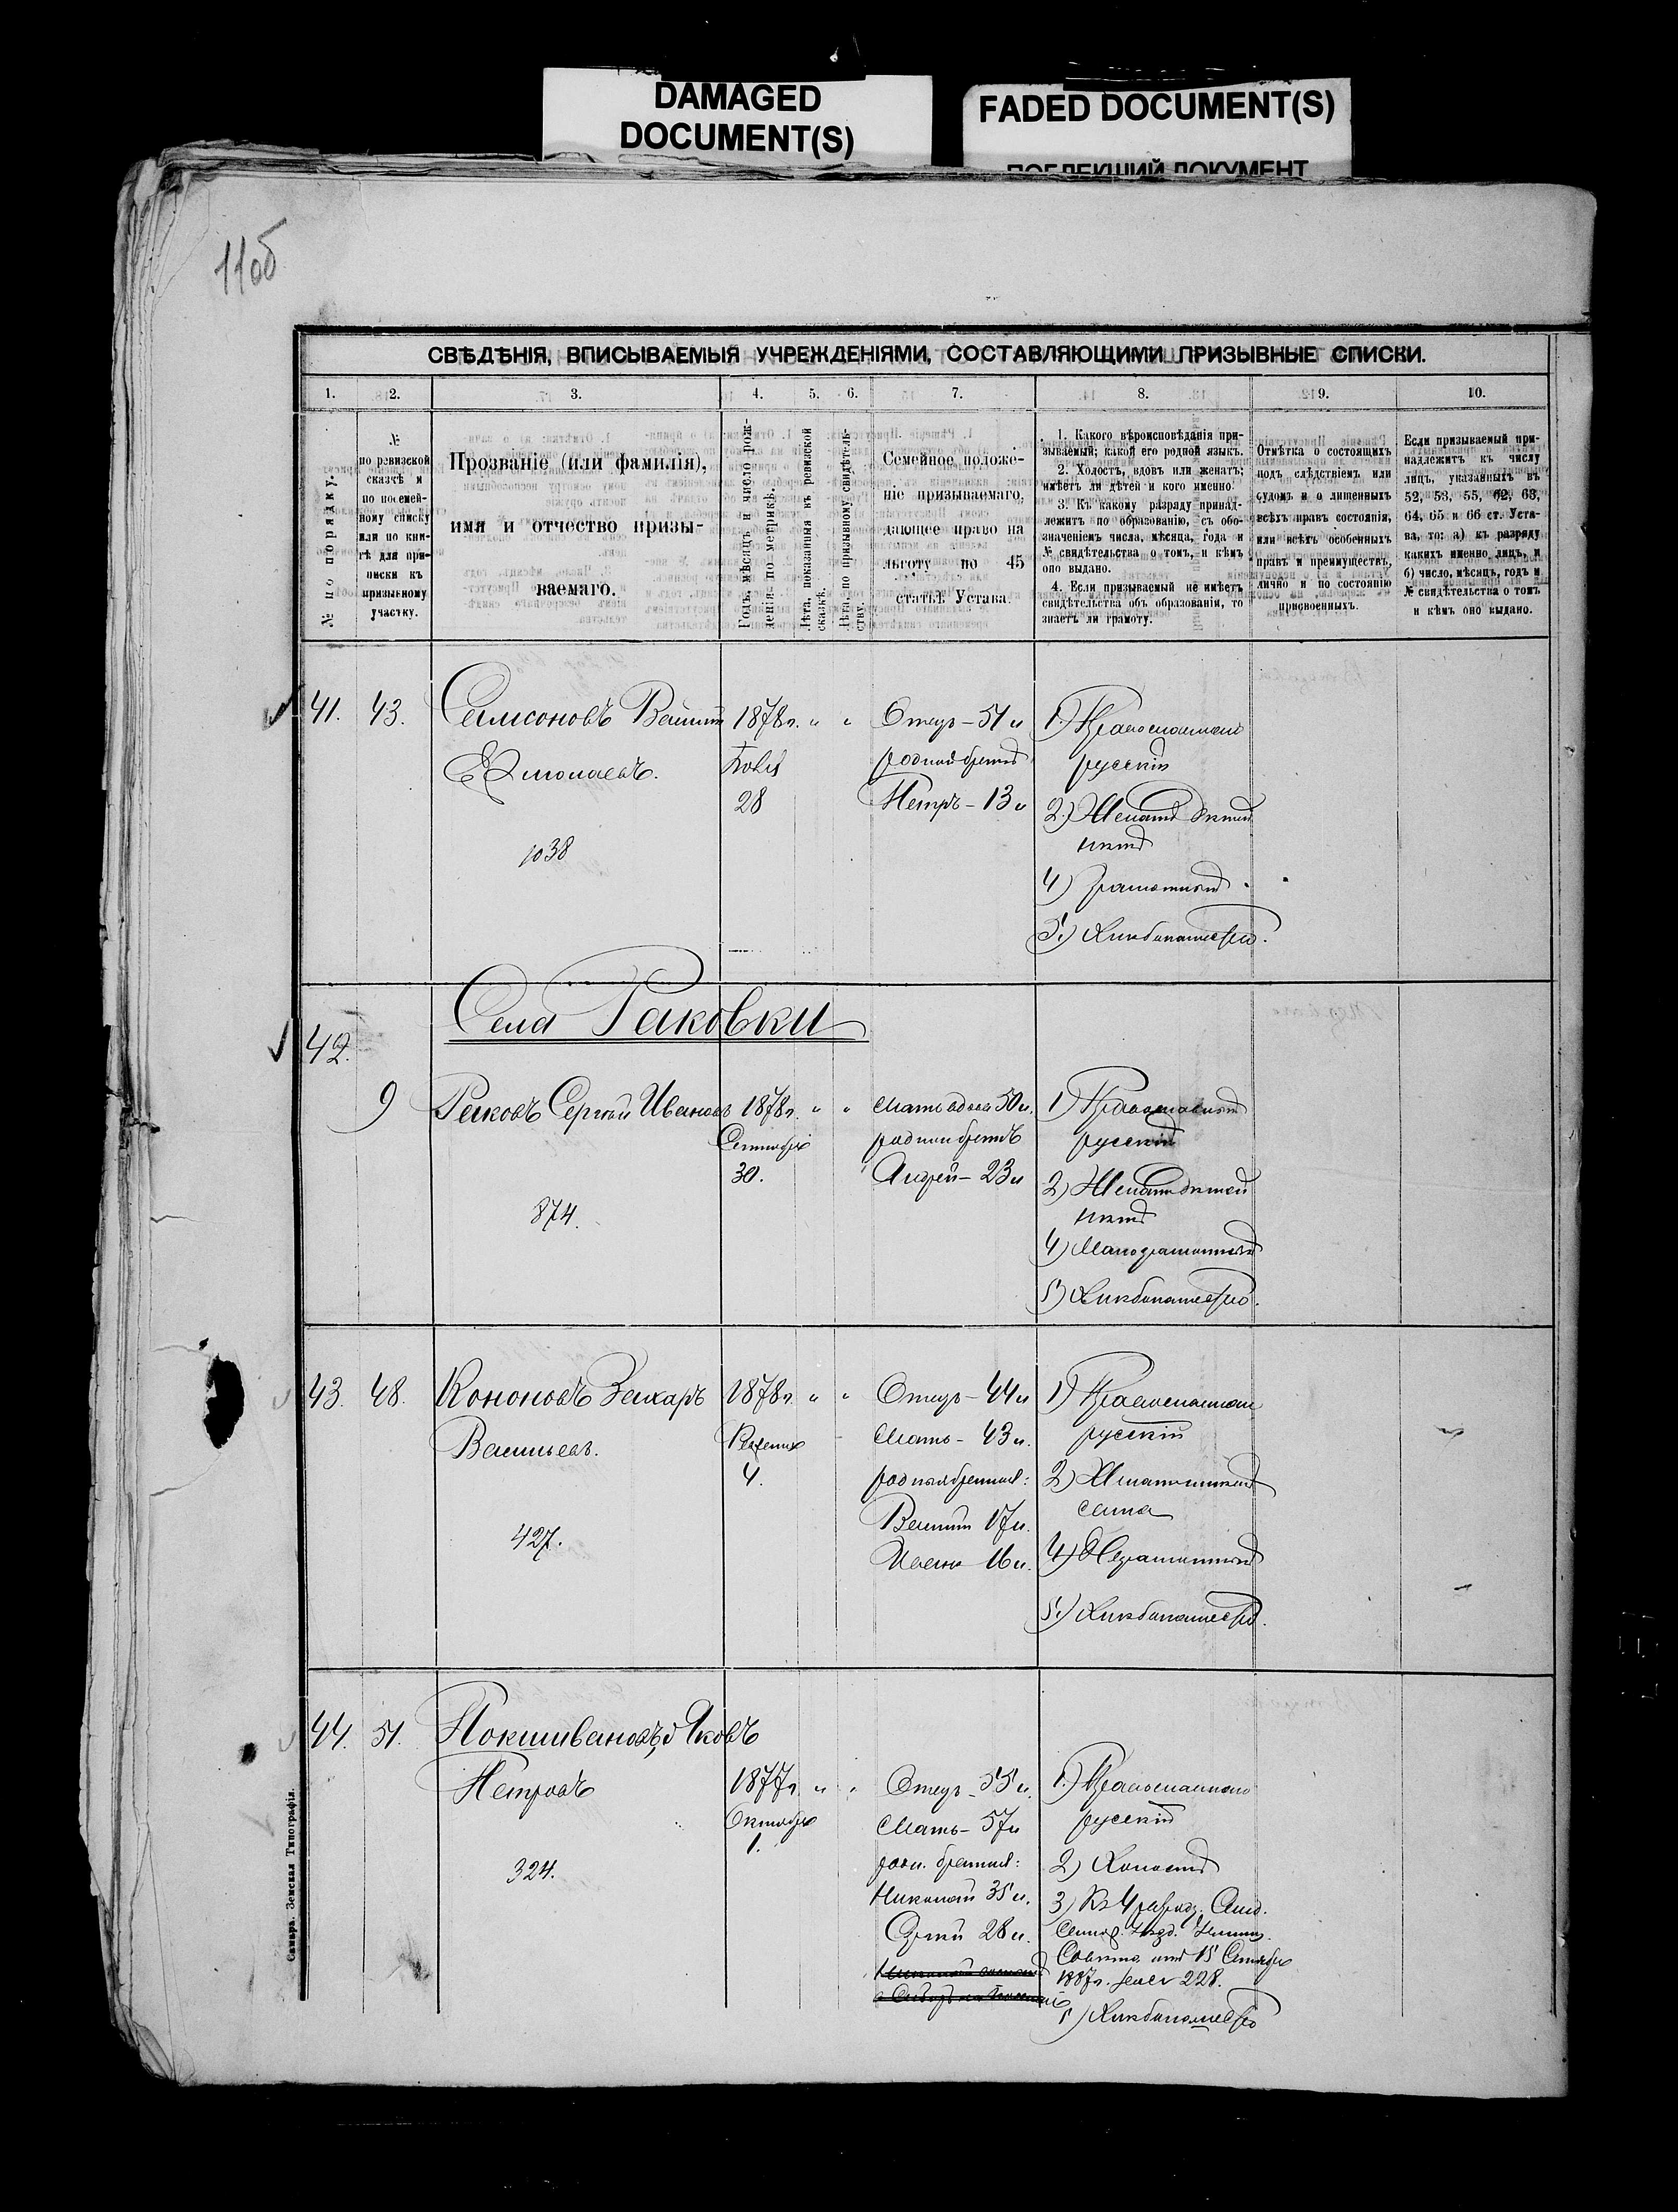 DAMAGED
DOCUMENT(S)
FADED DOCUMENT(S)
ПОБЛЕКШИЙ ДОКУМЕНТ
11об
СВѢДѢНІЯ, ВПИСЫВАЕМЫЯ УЧРЕЖДЕНІЯМИ, СОСТАВЛЯЮЩИМИ ПРИЗЫВНЫЕ СПИСКИ.
1. 2. 3. 4. 5. 6. 7. 8. 9. 10.
№ по порядку.
№
по ревизской
сказкѣ и
по посемей-
ному списку
или по кни-
гѣ для при-
писки къ
призывному
участку.
Прозваніе (или фамилія),
имя и отчество призы-
ваемаго.
Годъ, мѣсяцъ и число рож-
денія по метрикѣ.
Лѣта, показанныя въ ревизской
сказкѣ.
Лѣта, по призывному свидѣтель-
ству.
Семейное положе-
ніе призываемаго,
дающее право на
льготу по 45
статьѣ Устава.
1. Какого вѣроисповѣданія при-
зываемый; какой его родной языкъ.
2. Холостъ, вдовъ или женатъ;
имѣетъ ли дѣтей и кого именно.
3. Къ какому разряду принад-
лежитъ по образованію, съ обо-
значеніемъ числа, мѣсяца, года и
№ свидѣтельства о томъ, и кѣмъ
оно выдано.
4. Если призываемый не имѣетъ
свидѣтельства объ образованіи, то
знаетъ ли грамоту.
Отмѣтка о состоящихъ
подъ слѣдствіемъ или
судомъ и о лишенныхъ
всѣхъ правъ состоянія,
или всѣхъ особенныхъ
правъ и преимуществъ,
лично и по состоянію
присвоенныхъ.
Если призываемый при-
надлежитъ къ числу
лицъ, указанныхъ въ
52, 53, 55, 62, 63,
64, 65 и 66 ст. Уста-
ва, то: а) къ разряду
какихъ именно лицъ, и
б) число, мѣсяцъ, годъ и
№ свидѣтельства о томъ
и кѣмъ оно выдано.
41. 43. Самсоновъ 1878г. " " Отецъ – 51 л
родной братъ
28 Петръ – 13 л
1038
1) Православнаго
русскій
2) Женатъ дѣтей
нѣтъ
4) Грамотный
5) Хлѣбопашество.
Села Раковки
42.
9 Раковъ Сергѣй Ивановъ 1878г. " " Мать вдова 50 л.
Сентября родной братъ
30. Андрей – 23 л
874.
1) Православный
русскій
2) Женатъ дѣтей
нѣтъ
4) Малограмотный
5) Хлѣбопашество.
43. 48. Кононовъ Захаръ 1878г. " " Отецъ – 44 л
Васильевъ. Мать – 43 л.
4. родныя братья:
17 л.
Иванъ 16 л.
427.
1) Православнаго
русскій
2)
сына
4) Неграмотный
5.) Хлѣбопашество.
44. 51. Яковъ
Петровъ 1877г. " " Отецъ – 55 л.
Октября Мать – 57 л
1. родн. братья:
Николай 35 л.
Сергѣй 28 л.
324.
1.) Православнаго
русскій
2) Холостъ
3) Къ 4 разряд.
Совѣта отъ 15 Сентября
1887г. за № 228.
5) Хлѣбопашество
Самара. Земская Типографія.